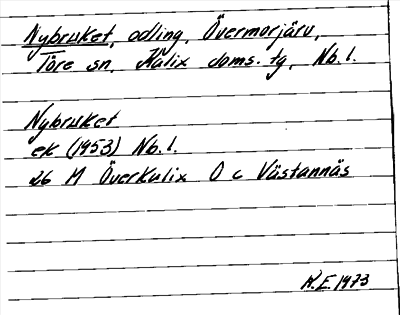 Nybruket, odling, Övermorjärv,
Töre sn, Kalix doms. tg, Nb. l.
Nybruket
ek (1953) Nb. l.
26 M Överkalix O c Västannäs
N.E. 1973